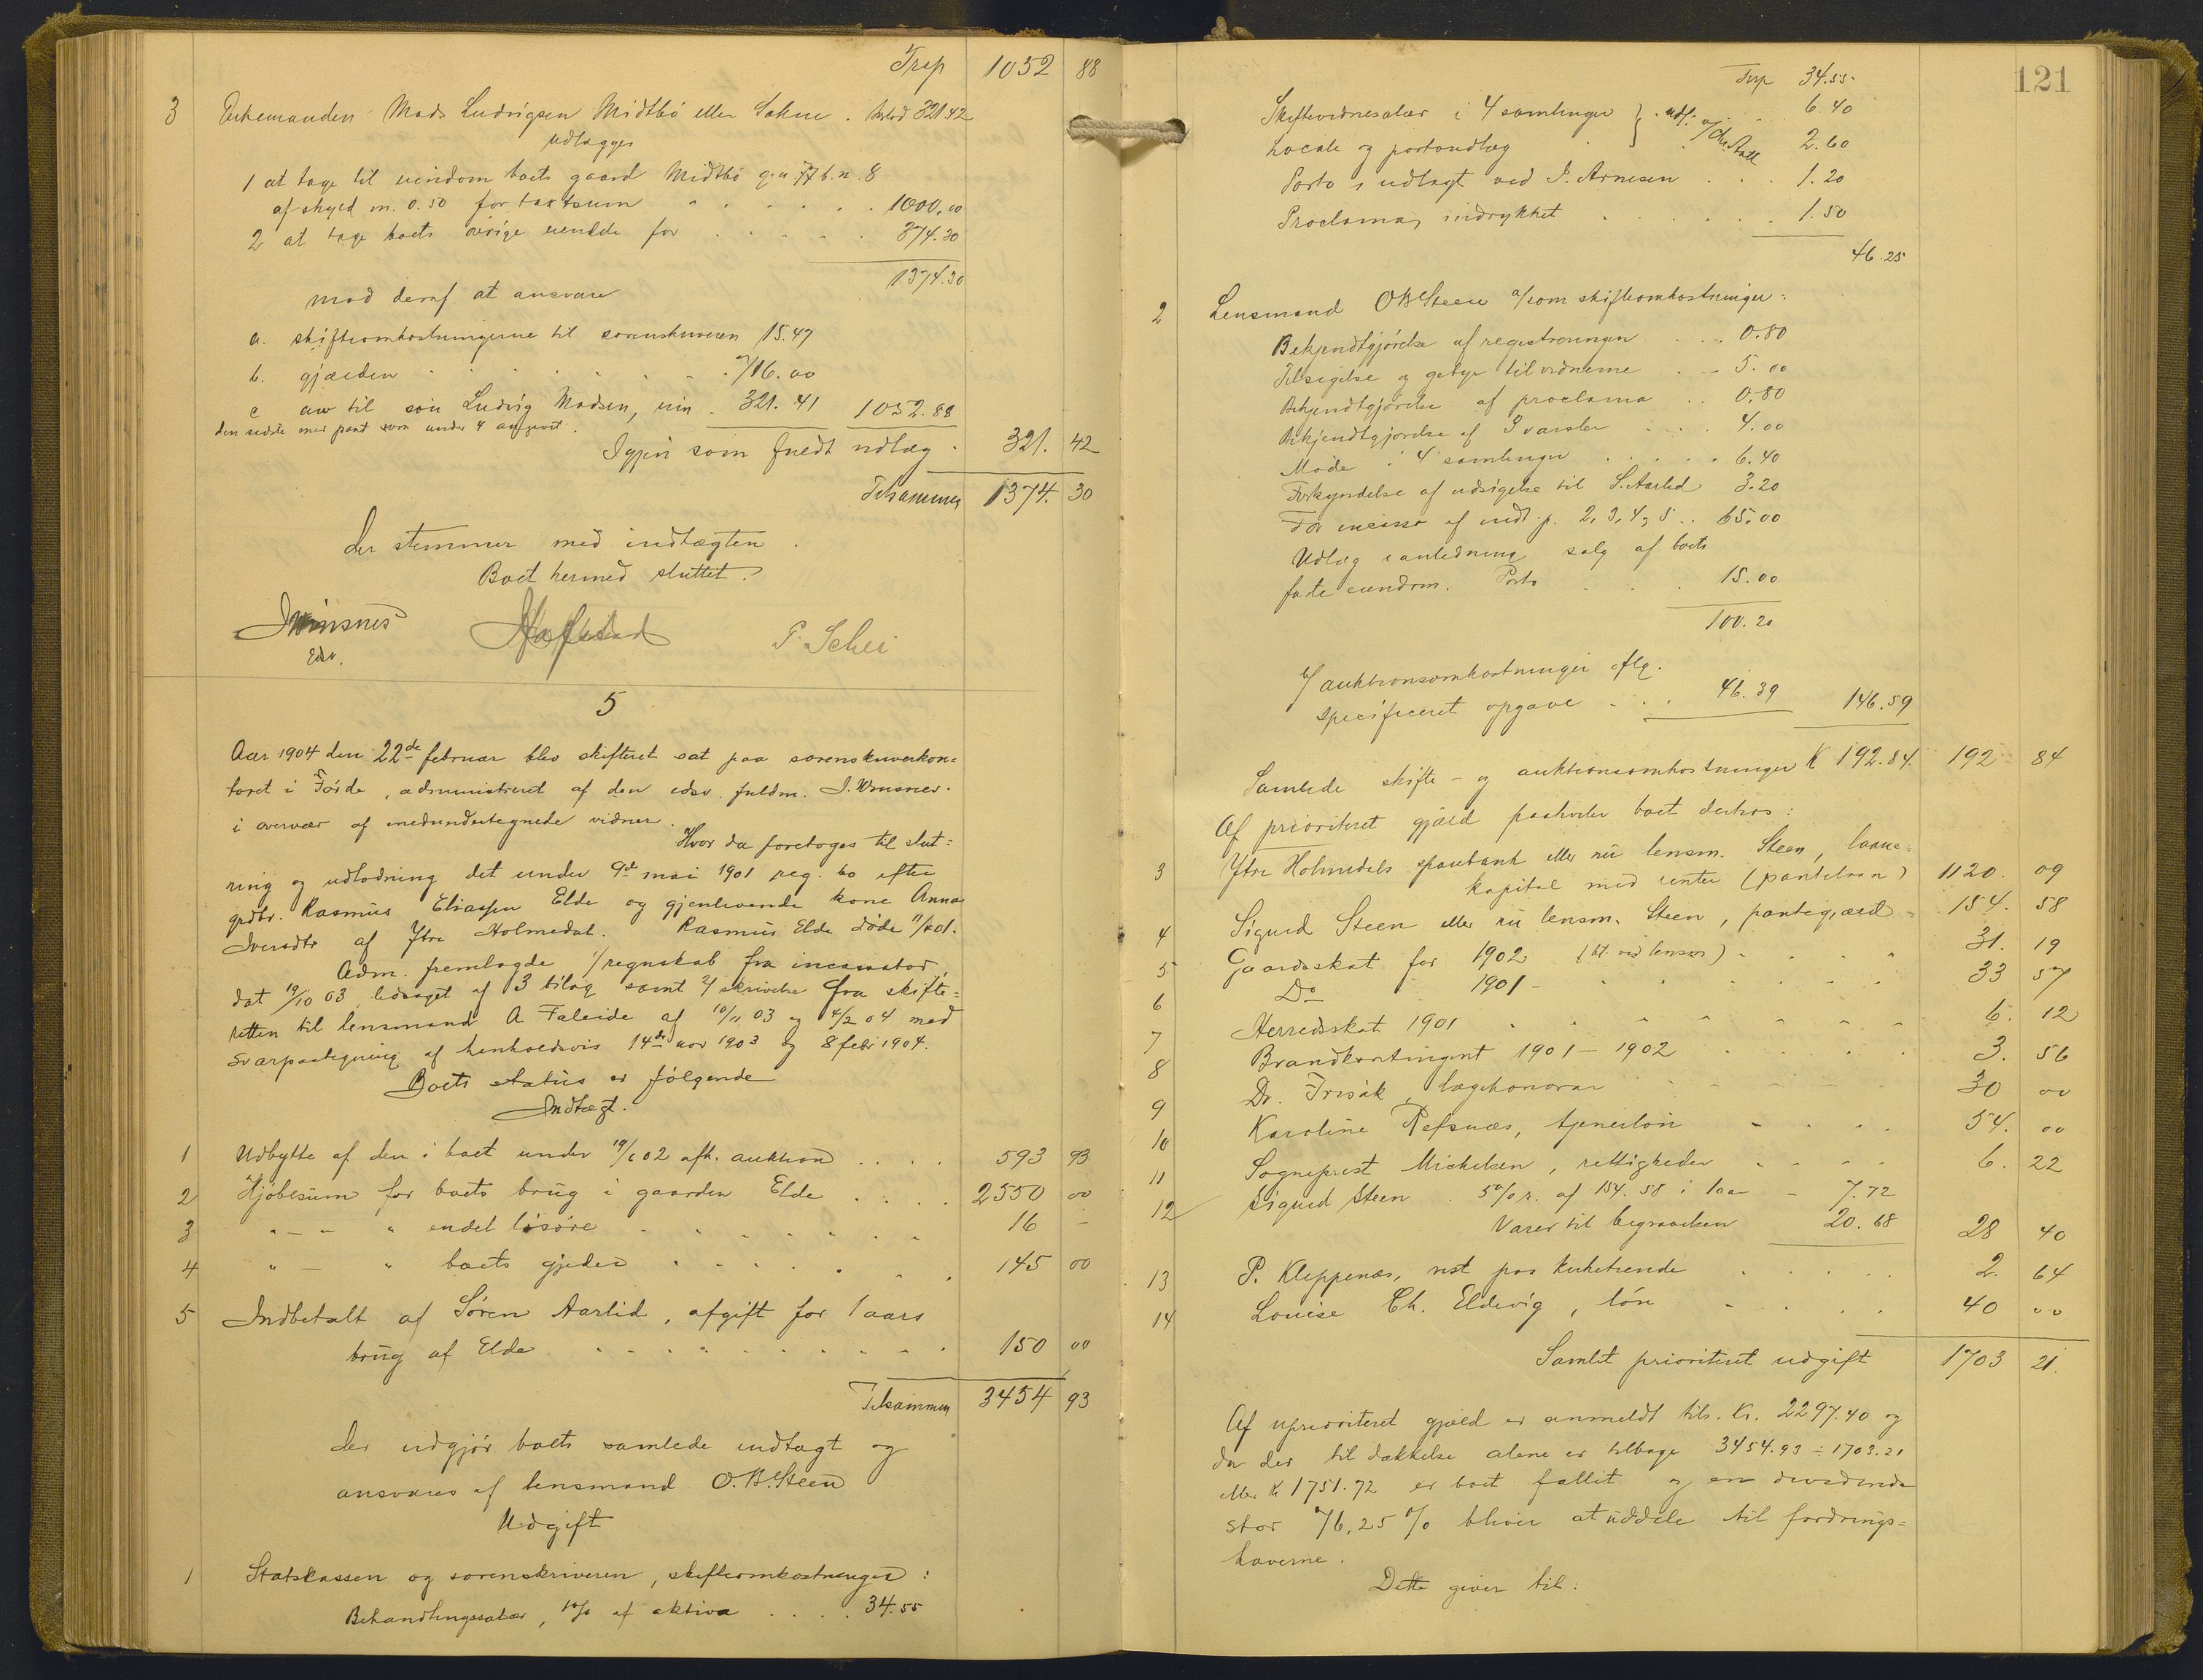 Trsp 1052 88
3 Enkemanden Mads Ludvigsen Midtbö eller Sakne. Arvlod 321 42
udlægges
1 at tage til eiendom boets gaard Midtbö g.n 77 b.n. 8
af skyld m. 0.50 for taxtsum 1000,00
2 at tage boets övrige eiendele for 374.30
1374.30
mod deraf at ansvare
a. skifteomkostningerne til sorenskriveren 15.47
b. gjælden 716.00
c arv til sön Ludvig Madsen, min. 321.41 1052.88
den sidste mod pant som under 4 angivet.
Igjen som fuldt udlæg. 321. 42
Tilsammen 1374. 30
der stemmer med indtægten.
Boet hermed sluttet.
J Winsnes
Edsv.
P. Schei
5
Aar 1904 den 22de februar blev skifteret sat paa sorenskriverkon=
toret i Förde, administreret af den edsv. fuldm. J. Winsnes.
i overvær af medundertegnede vidner.
Hvor da foretoges til slut=
ning og udlodning det under 9de mai 1901 reg. bo efter
grdbr. Rasmus Eliassen Elde og gjenlevende kone Anna
Iversdtr af Ytre Holmedal. Rasmus Elde döde
Adm. fremlagde 1/ regnskab fra incassator,
dat 19/10 03 ledsaget af 3 bilag samt 2/ skrivelse fra skifte=
retten til lensmand A Faleide af 10/11 03 og 4/2 04 med
svarpaategning af henholdsvis 14de nov 1903 og 8 febr 1904.
Boets status er fölgende
Indtægt.
1 Udbytte af den i boet under 19/6 02 afh. auktion 593 93
2 Kjöbesum for boets brug i gaarden Elde 2550 00
3 " — " endel lösöre 16 –
4 " — " boets gjeder 145 00
5 Indbetalt af Sören Aarlid, afgift for 1 aars
brug af Elde 150 00
Tilsammen 3454 93
der udgjör boets samlede indtægt og
ansvares af lensmand O.B. Steen
Udgift
1 Statskassen og sorenskriveren, skifteomkostninger:
Behandlingssalær, 1% af aktiva 34.55
121
Trsp 34.55
Skiftevidnesalær i 4 samlinger 6.40
Locale og portoudlæg 2.60
Porto, udlagt ved J. Arnesen 1.20
Proclama, indrykket 1.50
46.25
2 Lensmand O B Steen a/ som skifteomkostninger:
Bekjendtgjörelse af registreringen 0.80
Tilsigelse og gebyr til vidnerne 5.00
Bekjendtgjörelse af proclama 0.80
Bekjendtgjörelse af 3 varsler 4.00
Möde i 4 samlinger 6.40
Forkyndelse af udsigelse til S. Aarlid 3.20
For incasso af indt. p. 2, 3, 4 og 5 65.00
Udlæg i anledning salg af boets
faste eiendom. Porto 15.00
100.20
b/ auktionsomkostninger iflg.
specificeret opgave 46.39 146.59
Samlede skifte- og auktionsomkostninger K 192.84 192 84
Af prioriteret gjæld paahviler boet derhos:
3 Ytre Holmedals sparebank eller nu lensm. Steen, laane-
kapital med renter (pantelaan) 1120. 09
4 Sigurd Steen eller nu lensm. Steen, pantegjæld 154. 58
5 Gaardsskat for 1902 (bt. ved lensm) 31. 19
6 Do 1901 33 57
7 Herredsskat 1901 6. 12
8 Brandkontingent 1901 – 1902 3. 56
9 Dr. Frisak, lægehonorar 30 00
10 Karoline Refsnæs, tjenerlön 54. 00
11 Sogneprest Michelsen, rettigheder 6. 22
12 Sigurd Steen 5% r. af 154.58 i 1 aar 7.72
Varer til begravelsen 20.68 28 40
13 P. Kleppenæs, rest paa kirketiende 2. 64
14 Louise Ch. Eldevig, lön 40 00
Samlet prioriteret udgift 1703 21.
Af uprioriteret gjæld er anmeldt tils. Kr. 2297.40 og
da der til dækkelse alene er tilbage 3454.93 ÷ 1703.21
eller K 1751.72 er boet fallit og en dividende
stor 76,25 % bliver at uddele til fordrings=
haverne.
Dette giver til: